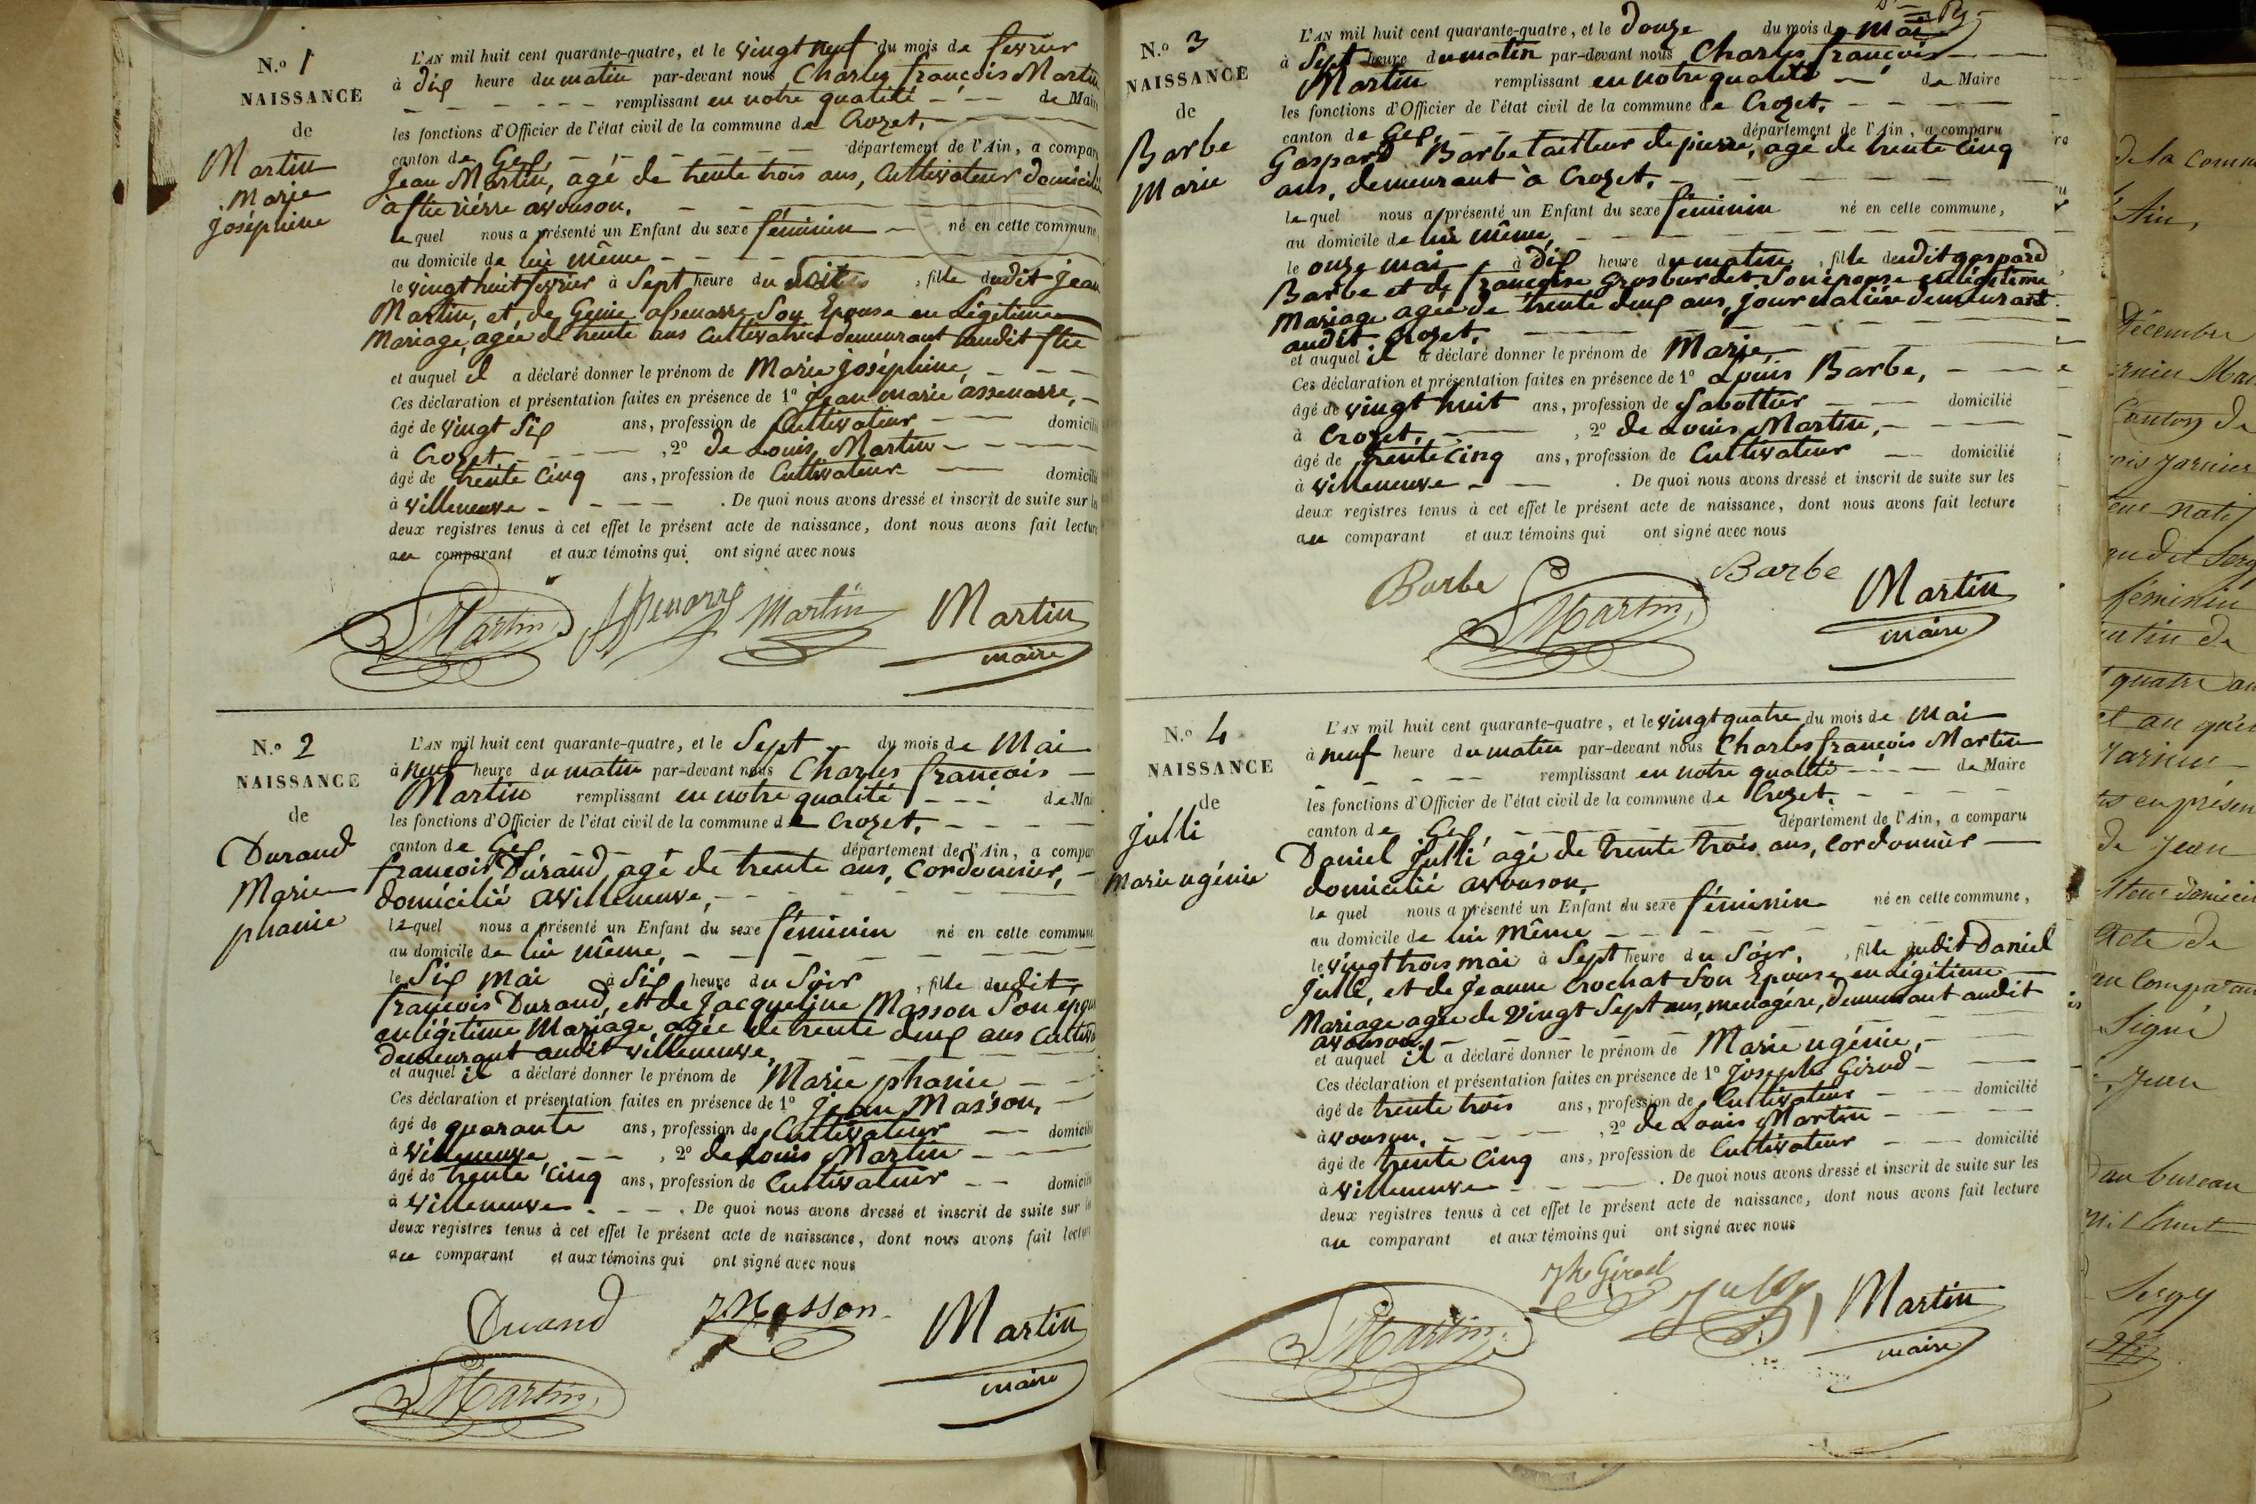 N.o 1
NAISSANCE
de
Martin
Marie
Joséphine
L'AN mil huit cent quarante-quatre, et le vingt neuf du mois de fevrier
à dix heure du matin par-devant nous Charles françois Martin
remplissant en notre qualité de Maire
les fonctions d'Officier de l'état civil de la commune de Crozet,
canton de Gex, département de l'Ain, a comparu
Jean Martin, agé de trente trois ans, Cultivateur domicilié
à avouson,
le quel nous a présenté un Enfant du sexe féminin né en cette commune,
au domicile de lui même
le vingt huit fevrier à Sept heure du , fille dudit Jean
Martin, et de Genie assenarre Son Epouse en Légitime
Mariage, agée de trente ans Cultivatrice demeurant audit
et auquel il a déclaré donner le prénom de Marie joséphine,
Ces déclaration et présentation faites en présence de 1o jean marie assenarre,
âgé de vingt Six ans, profession de Cultivateur domicilié
à Crozet , 2o de Louis Martin
âgé de trente Cinq ans, profession de Cultivateur domicilié
à villeneuve . De quoi nous avons dressé et inscrit de suite sur les
deux registres tenus à cet effet le présent acte de naissance, dont nous avons fait lecture
au comparant et aux témoins qui ont signé avec nous
L Martin Martin Martin
maire
N.o 2
NAISSANCE
de
Durand
Marie
phanie
L'AN mil huit cent quarante-quatre, et le Sept du mois de Mai
à neuf heure du matin par-devant nous Charles françois
Martin remplissant en notre qualité de Mai
les fonctions d'Officier de l'état civil de la commune de Crozet,
canton de Gex département de l'Ain, a compar
françois Durand, agé de trente ans, Cordonnier,
domicilié avilleneuve,
le quel nous a présenté un Enfant du sexe féminin né en cette commune
au domicile de lui même,
le Six mai à Six heure du Soir , fille dudit
françois Durand, et de Jacqueline Masson Son epou
en légitime Mariage agée de trente deux ans Cultiva
demeurant audit villeneuve,
et auquel il a déclaré donner le prénom de Marie phanie
Ces déclaration et présentation faites en présence de 1o Jean Masson,
âgé de quarante ans, profession de Cultivateur domicilié
à villeneuve , 2o de Louis Martin
âgé de trente Cinq ans, profession de Cultivateur domicilié
à villeneuve . De quoi nous avons dressé et inscrit de suite sur les
deux registres tenus à cet effet le présent acte de naissance, dont nous avons fait lecture
au comparant et aux témoins qui ont signé avec nous
Durand J Masson Martin
maire
L Martin
N.o 3
NAISSANCE
de
Barbe
Marie
L'AN mil huit cent quarante-quatre, et le douze du mois de mai
à Sept heure du matin par-devant nous Charles françois
Martin remplissant en notre qualité de Maire
les fonctions d'Officier de l'état civil de la commune de Crozet,
canton de Gex, département de l'Ain, a comparu
Gaspard Barbe tailleur de pierre, agé de trente cinq
ans, demeurant à Crozet,
le quel nous a présenté un Enfant du sexe féminin né en cette commune,
au domicile de lui même,
le onze mai à dix heure du matin , fille dudit gaspard
Barbe et de françoise Grosburdet Son épouse en légitime
Mariage agée de trente deux ans, journalière demeurant
audit Crozet,
et auquel il a déclaré donner le prénom de Marie,
Ces déclaration et présentation faites en présence de 1o Louis Barbe,
âgé de vingt huit ans, profession de Sabottier domicilié
à Crozet, , 2o de Louis Martin,
âgé de trente Cinq ans, profession de Cultivateur domicilié
à villeneuve . De quoi nous avons dressé et inscrit de suite sur les
deux registres tenus à cet effet le présent acte de naissance, dont nous avons fait lecture
au comparant et aux témoins qui ont signé avec nous
Barbe L Martin Barbe Martin
maire
N.o 4
NAISSANCE
de
Julli
Marie ugénie
L'AN mil huit cent quarante-quatre, et le vingt quatre du mois de Mai
à neuf heure du matin par-devant nous Charles françois Martin
remplissant en notre qualité de Maire
les fonctions d'Officier de l'état civil de la commune de Crozet,
canton de Gex, département de l'Ain, a comparu
Daniel Julli agé de trente trois ans, Cordonnier
domicilié avouson,
le quel nous a présenté un Enfant du sexe féminin né en cette commune,
au domicile de lui même
le vingt trois mai à Sept heure du Soir, , fille dudit Daniel
Julli, et de Jeanne Crochat Son Epouse en Légitime
Mariage agée de vingt Sept ans, menagére, demeurant audit
avouson,
et auquel il a déclaré donner le prénom de Marie ugénie,
Ces déclaration et présentation faites en présence de 1o Joseph Girod
âgé de trente trois ans, profession de Cultivateur domicilié
à vouson, , 2o de Louis Martin
âgé de trente Cinq ans, profession de Cultivateur domicilié
à villeneuve . De quoi nous avons dressé et inscrit de suite sur les
deux registres tenus à cet effet le présent acte de naissance, dont nous avons fait lecture
au comparant et aux témoins qui ont signé avec nous
L Martin Jh Girod Jully Martin
maire
de la comm
Ain,
Décembre
Canton de
féminin
quatre an
en présen
de Jean
acte de
au comparan
Signé
Jean
au bureau
Sergy